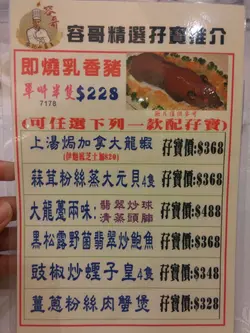 容哥
容哥精選孖寶推介
即燒乳香豬
單叫半隻$228
7178
(可任選下列一款配孖寶)
上湯焗加拿大龍蝦 孖寶價:$368
(伊麵底芝士加$20)
蒜茸粉絲蒸大元貝4隻 孖寶價:$368
大龍躉兩味:翡翠炒球 清蒸頭腩 孖寶價:$488
黑松露野菌翡翠炒鮑魚 孖寶價:$368
豉椒炒蟶子皇4隻 孖寶價:$348
薑蔥粉絲肉蟹煲 孖寶價:$328